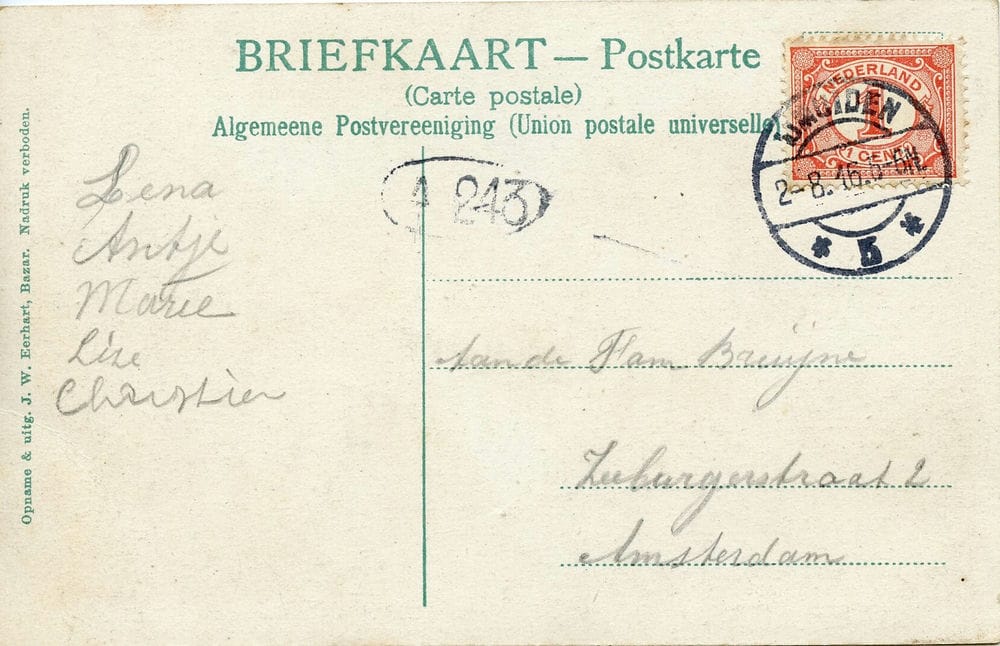 BRIEFKAART — Postkarte
(Carte postale)
Algemeene Postvereeniging (Union postale universelle)
NEDERLAND
1
1 CENT
IJMUIDEN
2-8.
5
243
Lena
Antje
Marie
Lize
Christien
Aan de Fam Bruijne
Zeeburgerstraat 2
Amsterdam
Opname & uitg. J. W. Eerhart, Bazar. Nadruk verboden.